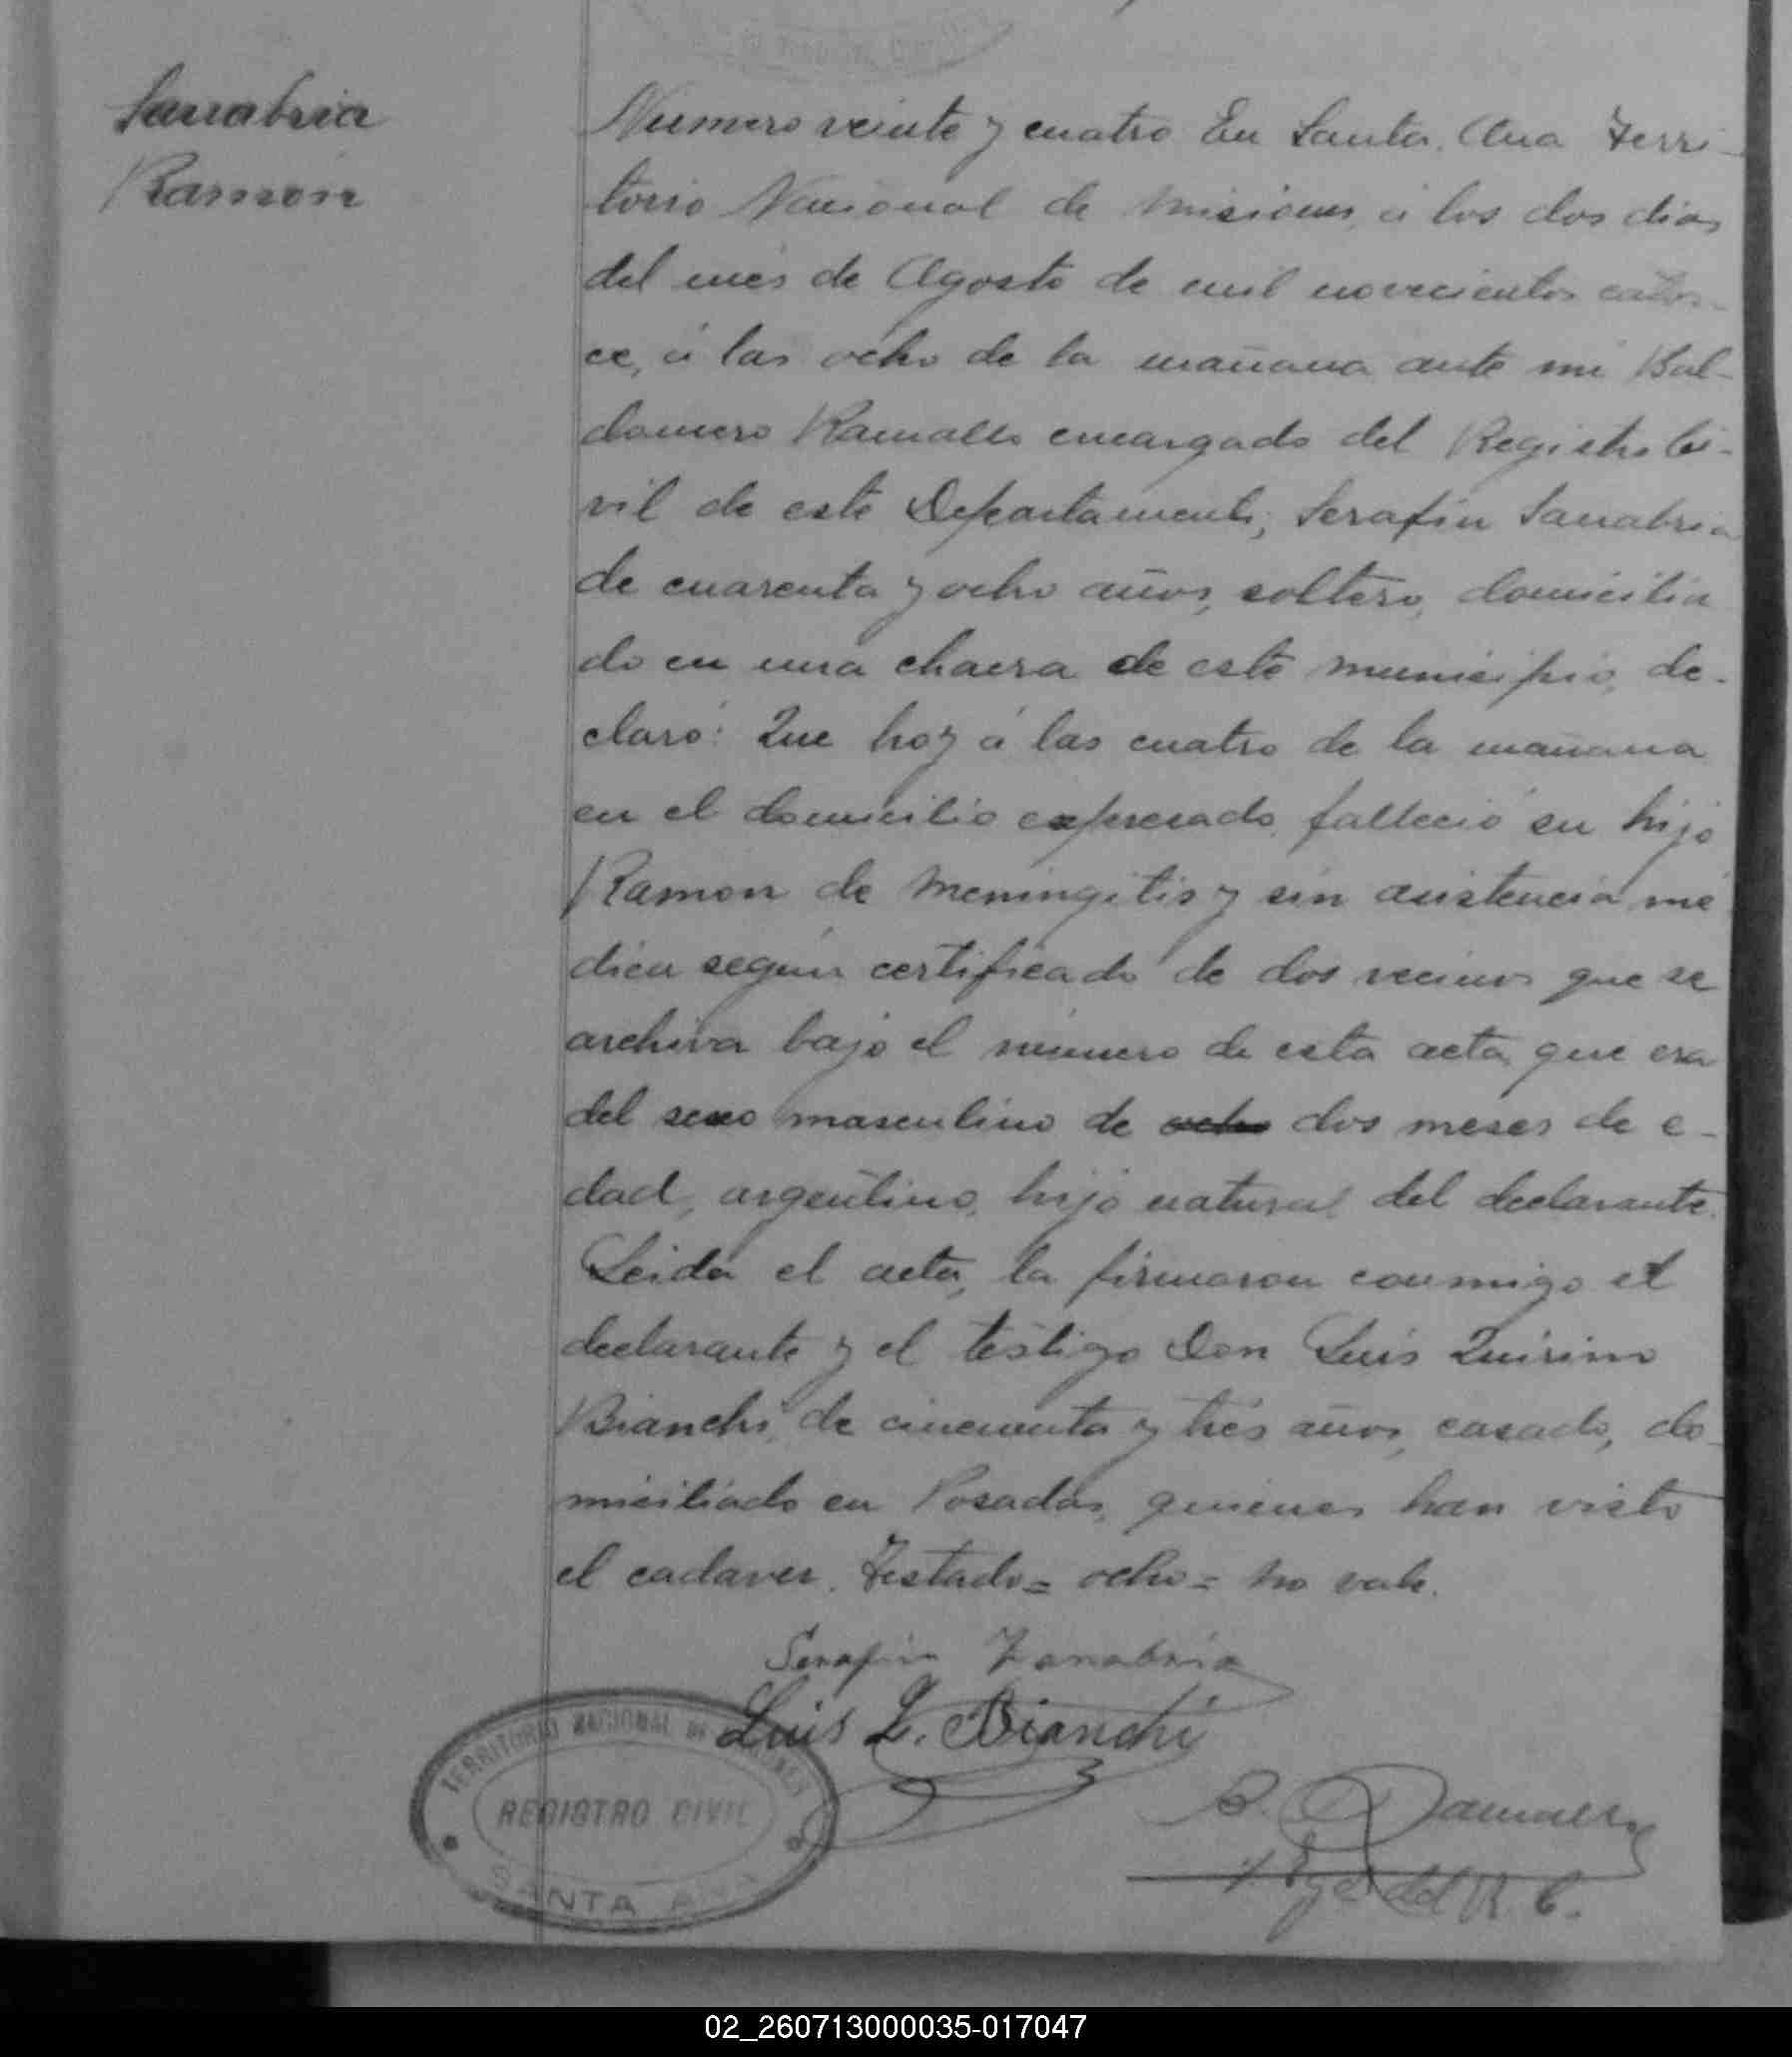 Sanabria
Ramón
Numero veinte y cuatro En Santa Ana Terri-
torio Nacional de Misiones, á los dos dias
del mes de Agosto de mil novecientos cator-
ce, á las ocho de la mañana ante mi Bal-
domero Ramallo encargado del Registro Ci-
vil de este Departamento, Serafin Sanabria
de cuarenta y ocho años, soltero, domicilia
do en una chacra de este municipio, de-
claró: Que hoy á las cuatro de la mañana
en el domicilio expresado, falleció su hijo
Ramon de Meningitis y sin asistencia mé
dica según certificado de dos vecinos que se
archiva bajo el número de esta acta, que era
del sexo masculino de ocho dos meses de e-
dad, argentino, hijo natural del declarante.
Leida el acta, la firmaron conmigo el
declarante y el testigo Don Luis Quirino
Bianchi, de cincuenta y trés años, casado, do-
miciliado en Posadas, quienes han visto
el cadaver. Testado = ocho = no vale.
Serafin Zanabria
Luis Q. Bianchi
B. Ramallo
del R. C.
TERRITORIO NACIONAL DE MISIONES
REGISTRO CIVIL
SANTA ANA
02_260713000035-017047